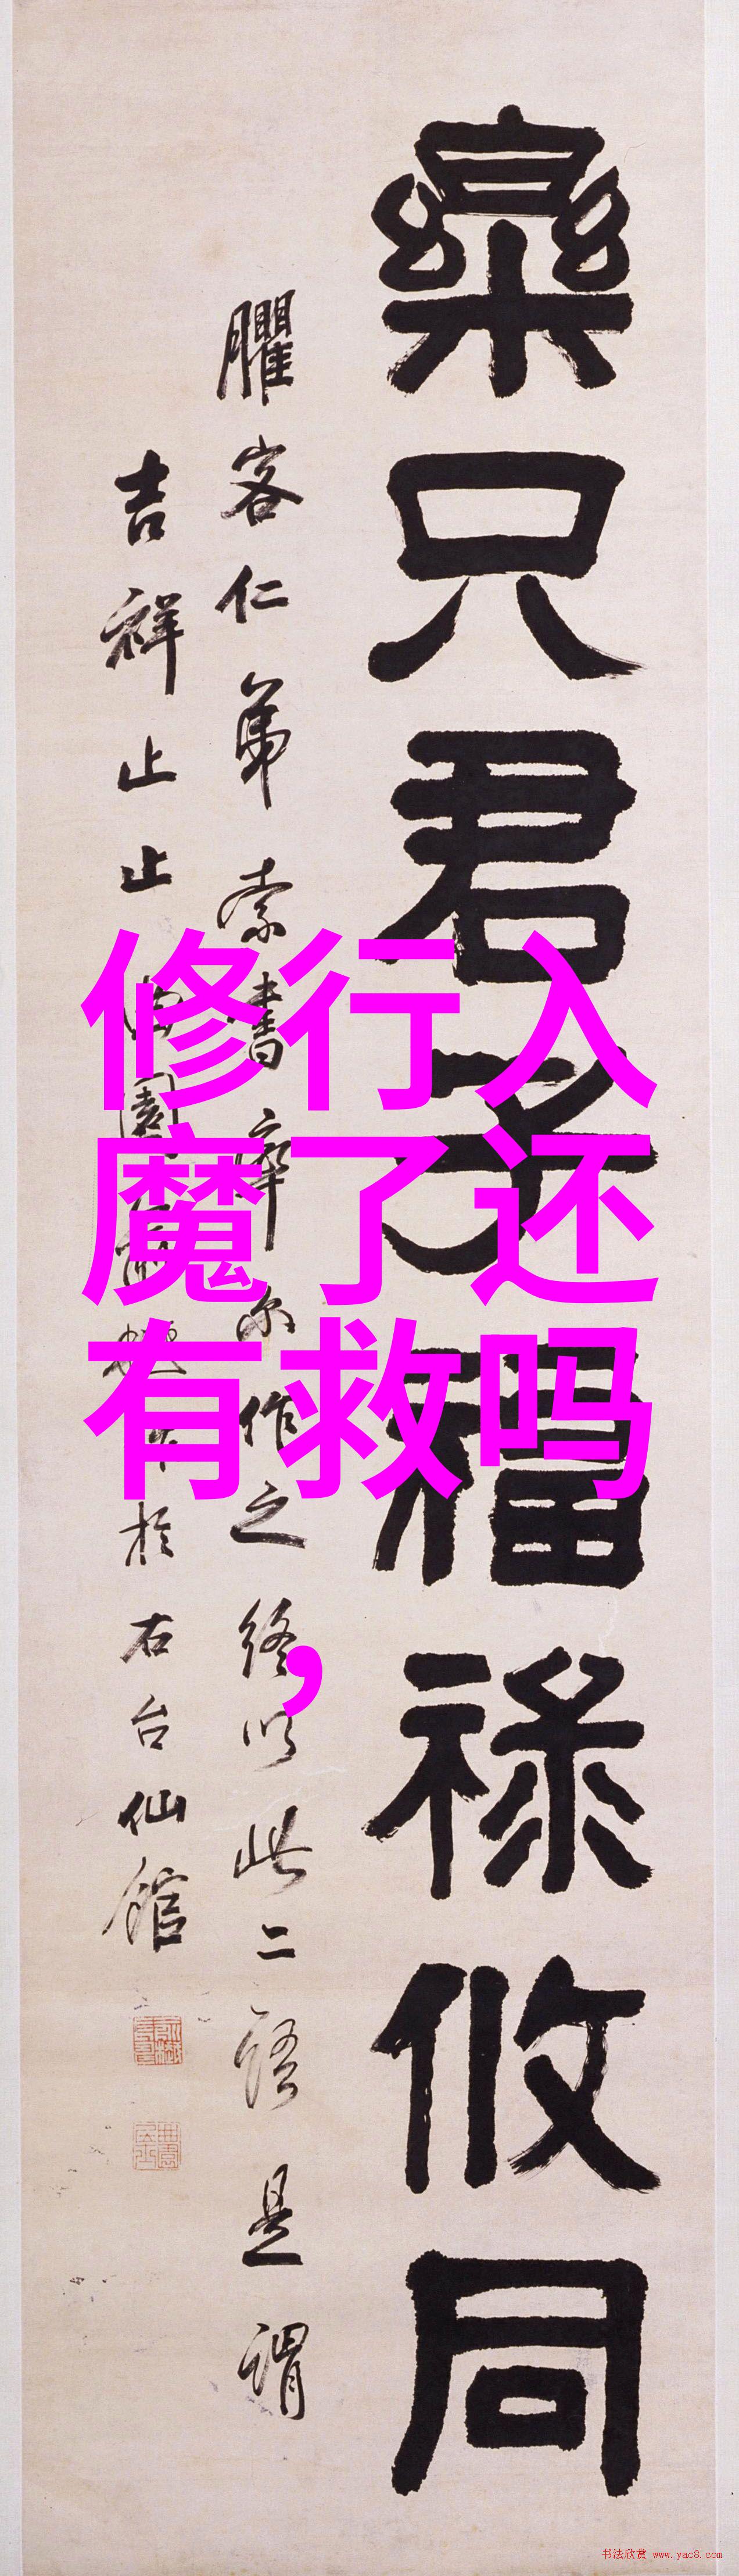 樂只君子福祿攸同
臞客仁弟索書率尔作之終以此二語是謂
吉祥止止 曲園俞樾 於右台仙館
修行入
魔了还
有救吗
，
书法欣赏 www.yac8.com